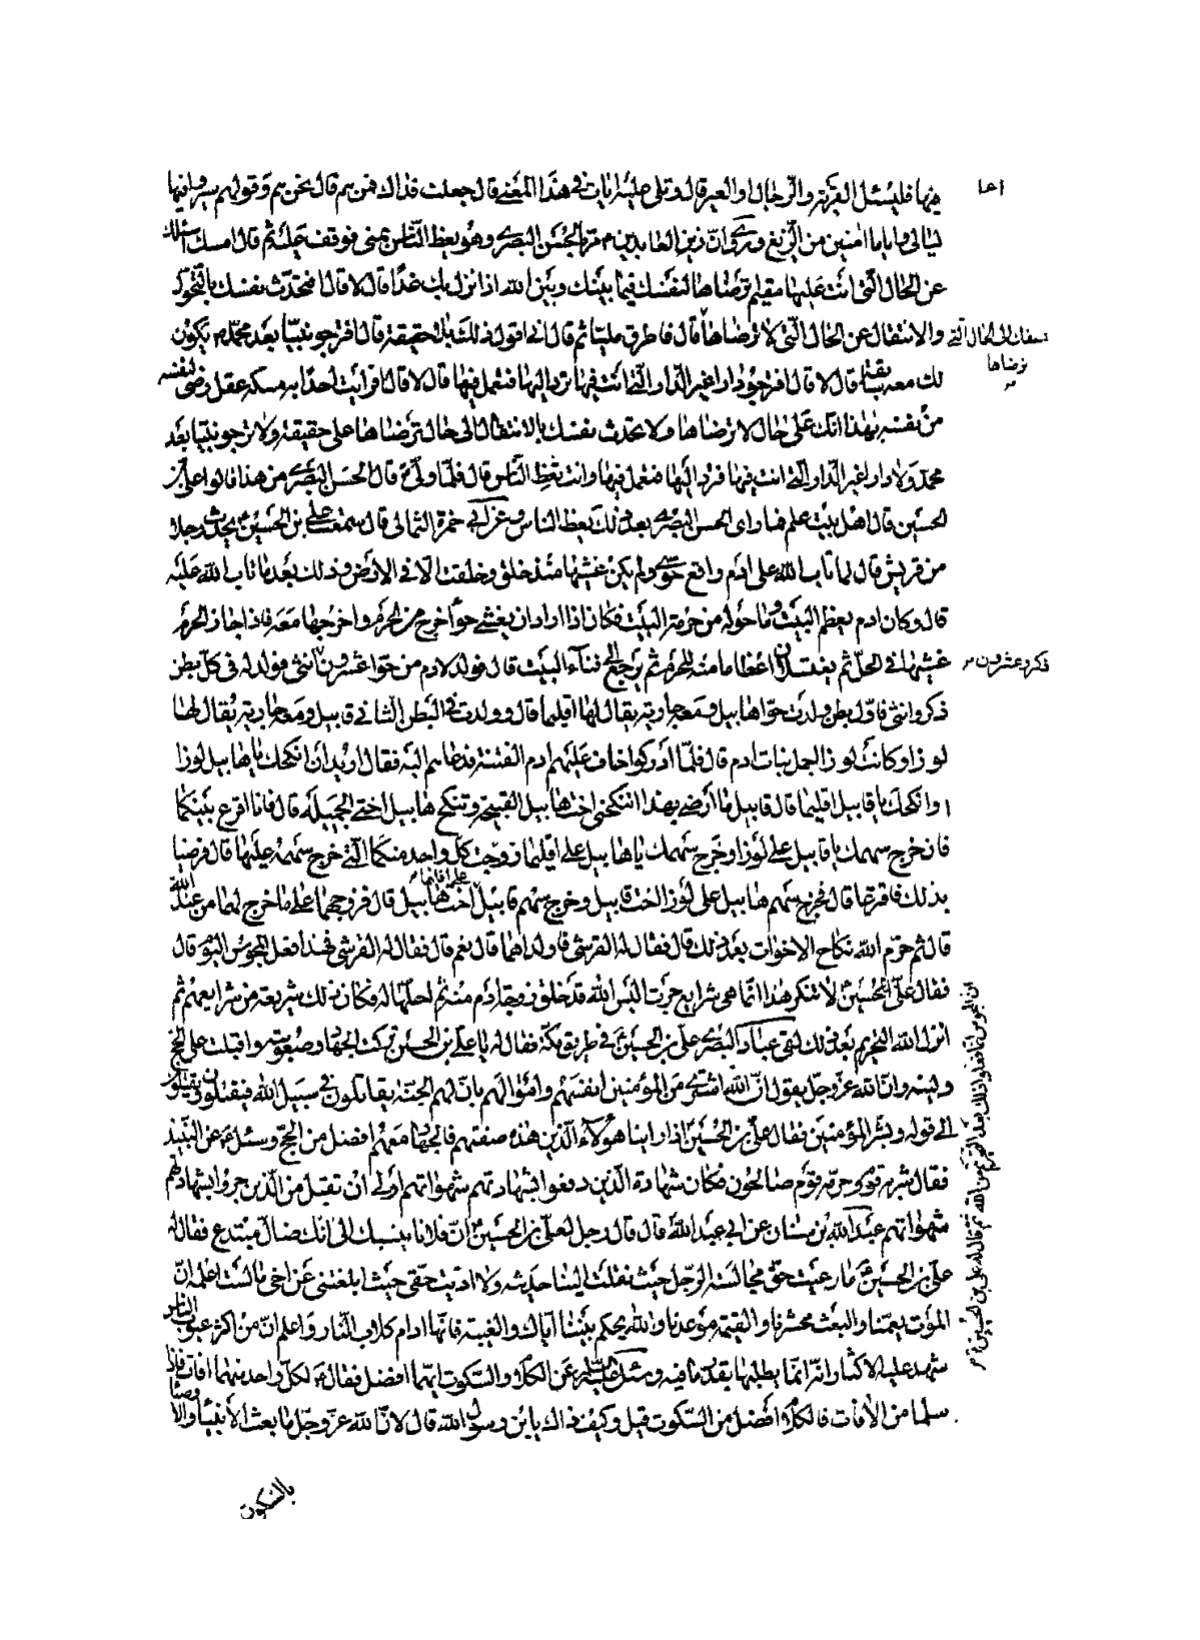 فيها فليسئل القرية والرجال او العير قال وتلى عليه ايات في هذا المعنى قال جعلت فداك فمن هم قال نحن هم وقولهم سيروا فيها
ليالي واياما امنين من الزيغ وروى ان زين العابدين م مر بالحسن البصرى وهو يعظ الناس بمنى فوقف عليه ثم قال امسك اسئلك
عن الحال التي انت عليها مقيم ترضاها لنفسك فيما بينك وبين الله اذا نزل بك غدا قال لا قال افتحدث نفسك بالتحول
والانتقال عن الحال التي لا ترضاها قال فاطرق مليا ثم قال انى اقول ذلك بلا حقيقة قال افترجو نبيا بعد محمد م يكون
الى الحال التي ترضاها
لك معه سابقة قال لا قال افترجو دارا غير الدار التي انت فيها ترد اليها فتعمل فيها قال لا قال افرايت احدا به مسكة عقل رضى لنفسه
من نفسه بهذا انك على حال لا ترضاها ولا تحدث نفسك بالانتقال الى حال ترضاها على حقيقة ولا ترجو نبيا بعد
محمد ولا دارا غير الدار التي انت فيها فترد اليها فتعمل فيها وانت تعظ الناس قال فلما ولى ع قال الحسن البصرى من هذا قالوا على بن
الحسين قال اهل بيت علم فما راى الحسن البصرى بعد ذلك يعظ الناس وعن ابى حمزة الثمالى قال سمعت على بن الحسين ع يحدث رجلا
من قريش قال لما تاب الله على ادم واقع حوى ولم يكن غشيها منذ خلق وخلقت الا في الارض وذلك بعد ما تاب الله عليه
قال وكان ادم يعظم البيت وما حوله من حرمة البيت فكان اذا اراد ان يغشى حوا خرج من الحرم واخرجها معه فاذا جاز الحرم
غشيها في الحل ثم يغتسلان اعظاما منه للحرم ثم يرجع الى فناء البيت قال فولد لادم من حوا عشرون انثى فولد له في كل بطن
ذكر وعشرون
ذكر وانثى فاول بطن ولدت حوا هابيل ومعه جارية يقال لها اقليما قال وولدت في البطن الثانى قابيل ومعه جارية يقال لها
لوزا وكانت لوزا اجمل بنات ادم قال فلما ادركوا خاف عليهم ادم الفتنة فدعاهم اليه فقال اريد ان انكحك يا هابيل لوزا
وانكحك يا قابيل اقليما قال قابيل ما ارضى بهذا اتنكحنى اخت هابيل القبيحة وتنكح هابيل اختى الجميلة قال فانا اقرع بينكما
فان خرج سهمك يا قابيل على لوزا وخرج سهمك يا هابيل على اقليما زوجت كل واحد منكما التي خرج سهمه عليها قال فرضيا
بذلك فاقرعا قال فخرج سهم هابيل على لوزا اخت قابيل وخرج سهم قابيل على اقليما اخت هابيل قال فزوجهما على ما خرج لهما من عند الله
قال ثم حرم الله نكاح الاخوات بعد ذلك قال فقال له القرشى فاولداهما قال نعم قال فقال له القرشى فهذا فعل المجوس اليوم قال
فقال على بن الحسين ع ان المجوس انما فعلوا ذلك بعد التحريم من الله ثم قال له على بن الحسين ع لا تنكر هذا انما هى شرايع جرت اليس الله قد خلق زوجة ادم منه ثم احلها له فكان ذلك شريعة من شرايعهم ثم
انزل الله التحريم بعد ذلك لقى عباد البصرى على بن الحسين ع في طريق مكة فقال له يا على بن الحسين تركت الجهاد وصعوبته واقبلت على الحج
ولينه وان الله عز وجل يقول ان الله اشترى من المؤمنين انفسهم واموالهم بان لهم الجنة يقاتلون في سبيل الله فيقتلون ويقتلون
الى قوله وبشر المؤمنين فقال على بن الحسين ع اذا راينا هؤلاء الذين هذه صفتهم فالجهاد معهم افضل من الحج وسئل ع عن النبيذ
فقال شربه قوم وحرمه قوم صالحون فكان شهادة الذين دفعوا بشهادتهم شهواتهم اولى ان تقبل من الذين جروا بشهادتهم
شهواتهم عبد الله بن سنان عن ابى عبد الله قال قال رجل لعلى بن الحسين ع ان فلانا ينسبك الى انك ضال مبتدع فقال له
على بن الحسين ع ما رعيت حق مجالسة الرجل حيث نقلت الينا حديثه ولا اديت حقى حيث ابلغتنى عن اخى ما لست اعلمه ان
الموت يعمنا والبعث محشرنا والقيمة موعدنا والله يحكم بيننا اياك والغيبة فانها ادام كلاب النار واعلم انه من اكثر عيوب الناس
شهد عليه الاكثار انه انما يطلبها بقدر ما فيه وسئل عليه السلم عن الكلام والسكوت ايهما افضل فقال ع لكل واحد منهما افات فاذا
سلما من الافات فالكلام افضل من السكوت قيل وكيف ذاك يا بن رسول الله قال لان الله عز وجل ما بعث الانبيا والاوصيا
بالسكوت